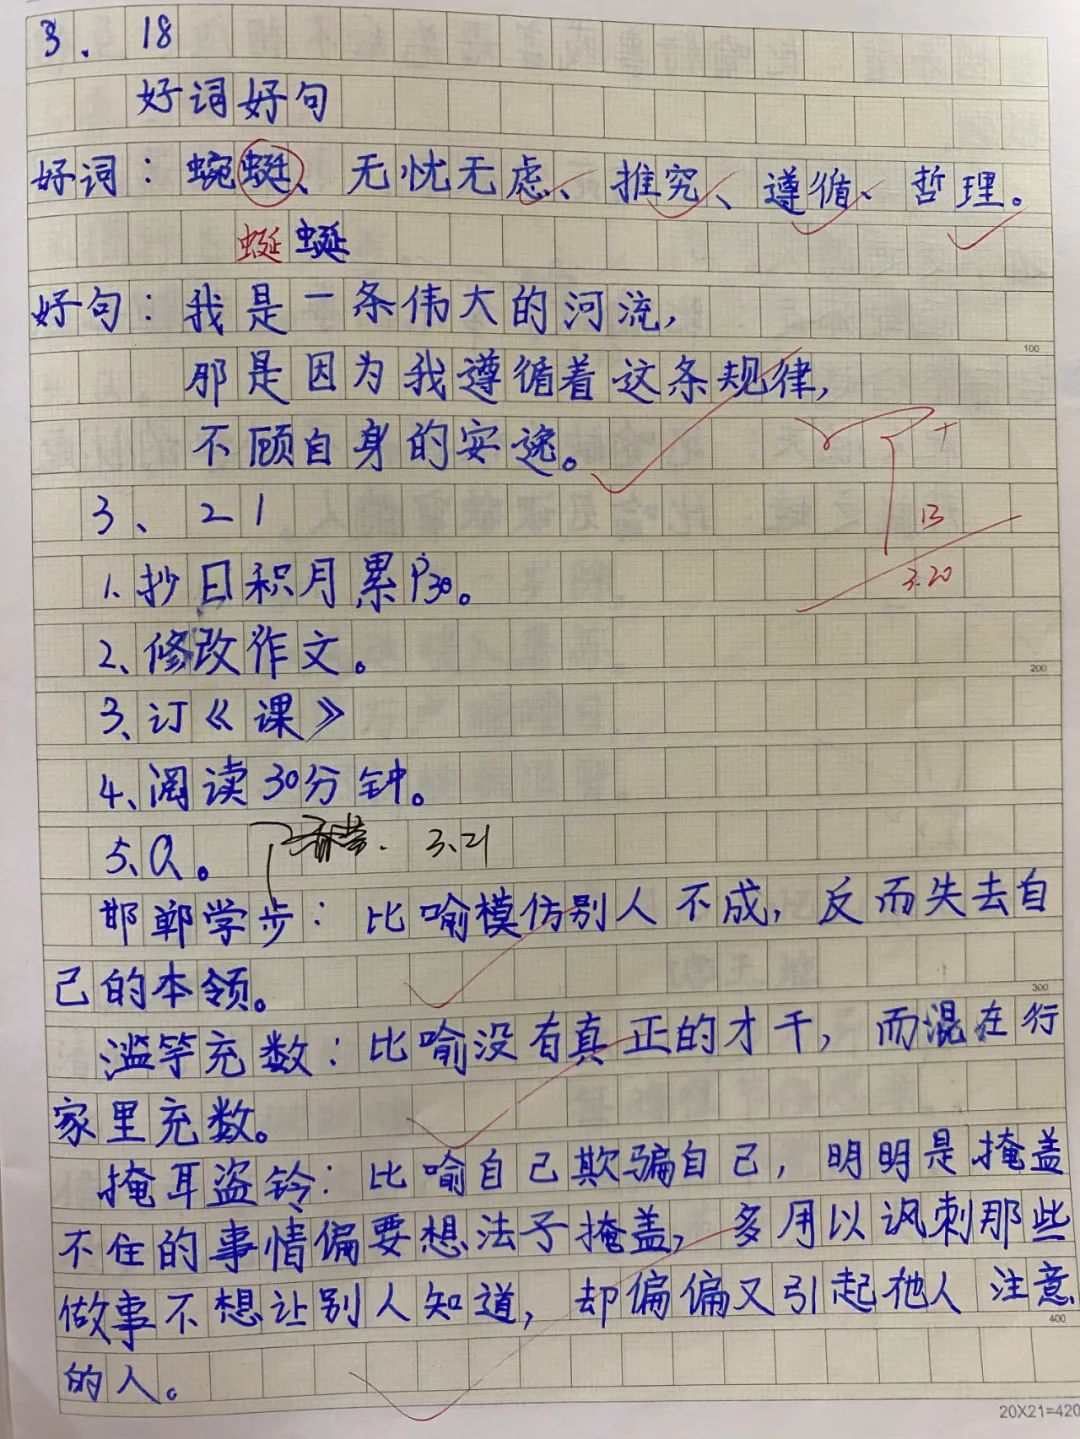 3. 18
好词好句
好词：蜿蜓、无忧无虑、推究、遵循、哲理。
蜒蜒
好句：我是一条伟大的河流，
100
那是因为我遵循着这条规律，
不顾自身的安逸。
3、21
13
1.抄日积月累P30。
3.20
2、修改作文。
200
3、订《课》
4、阅读30分钟。
5、Q。
3.21
邯郸学步：比喻模仿别人不成，反而失去自
己的本领。
300
滥竽充数：比喻没有真正的才干，而混在行
家里充数。
掩耳盗铃：比喻自己欺骗自己，明明是掩盖
不住的事情偏要想法子掩盖，多用以讽刺那些
做事不想让别人知道，却偏偏又引起他人注意
400
的人。
20X21=420